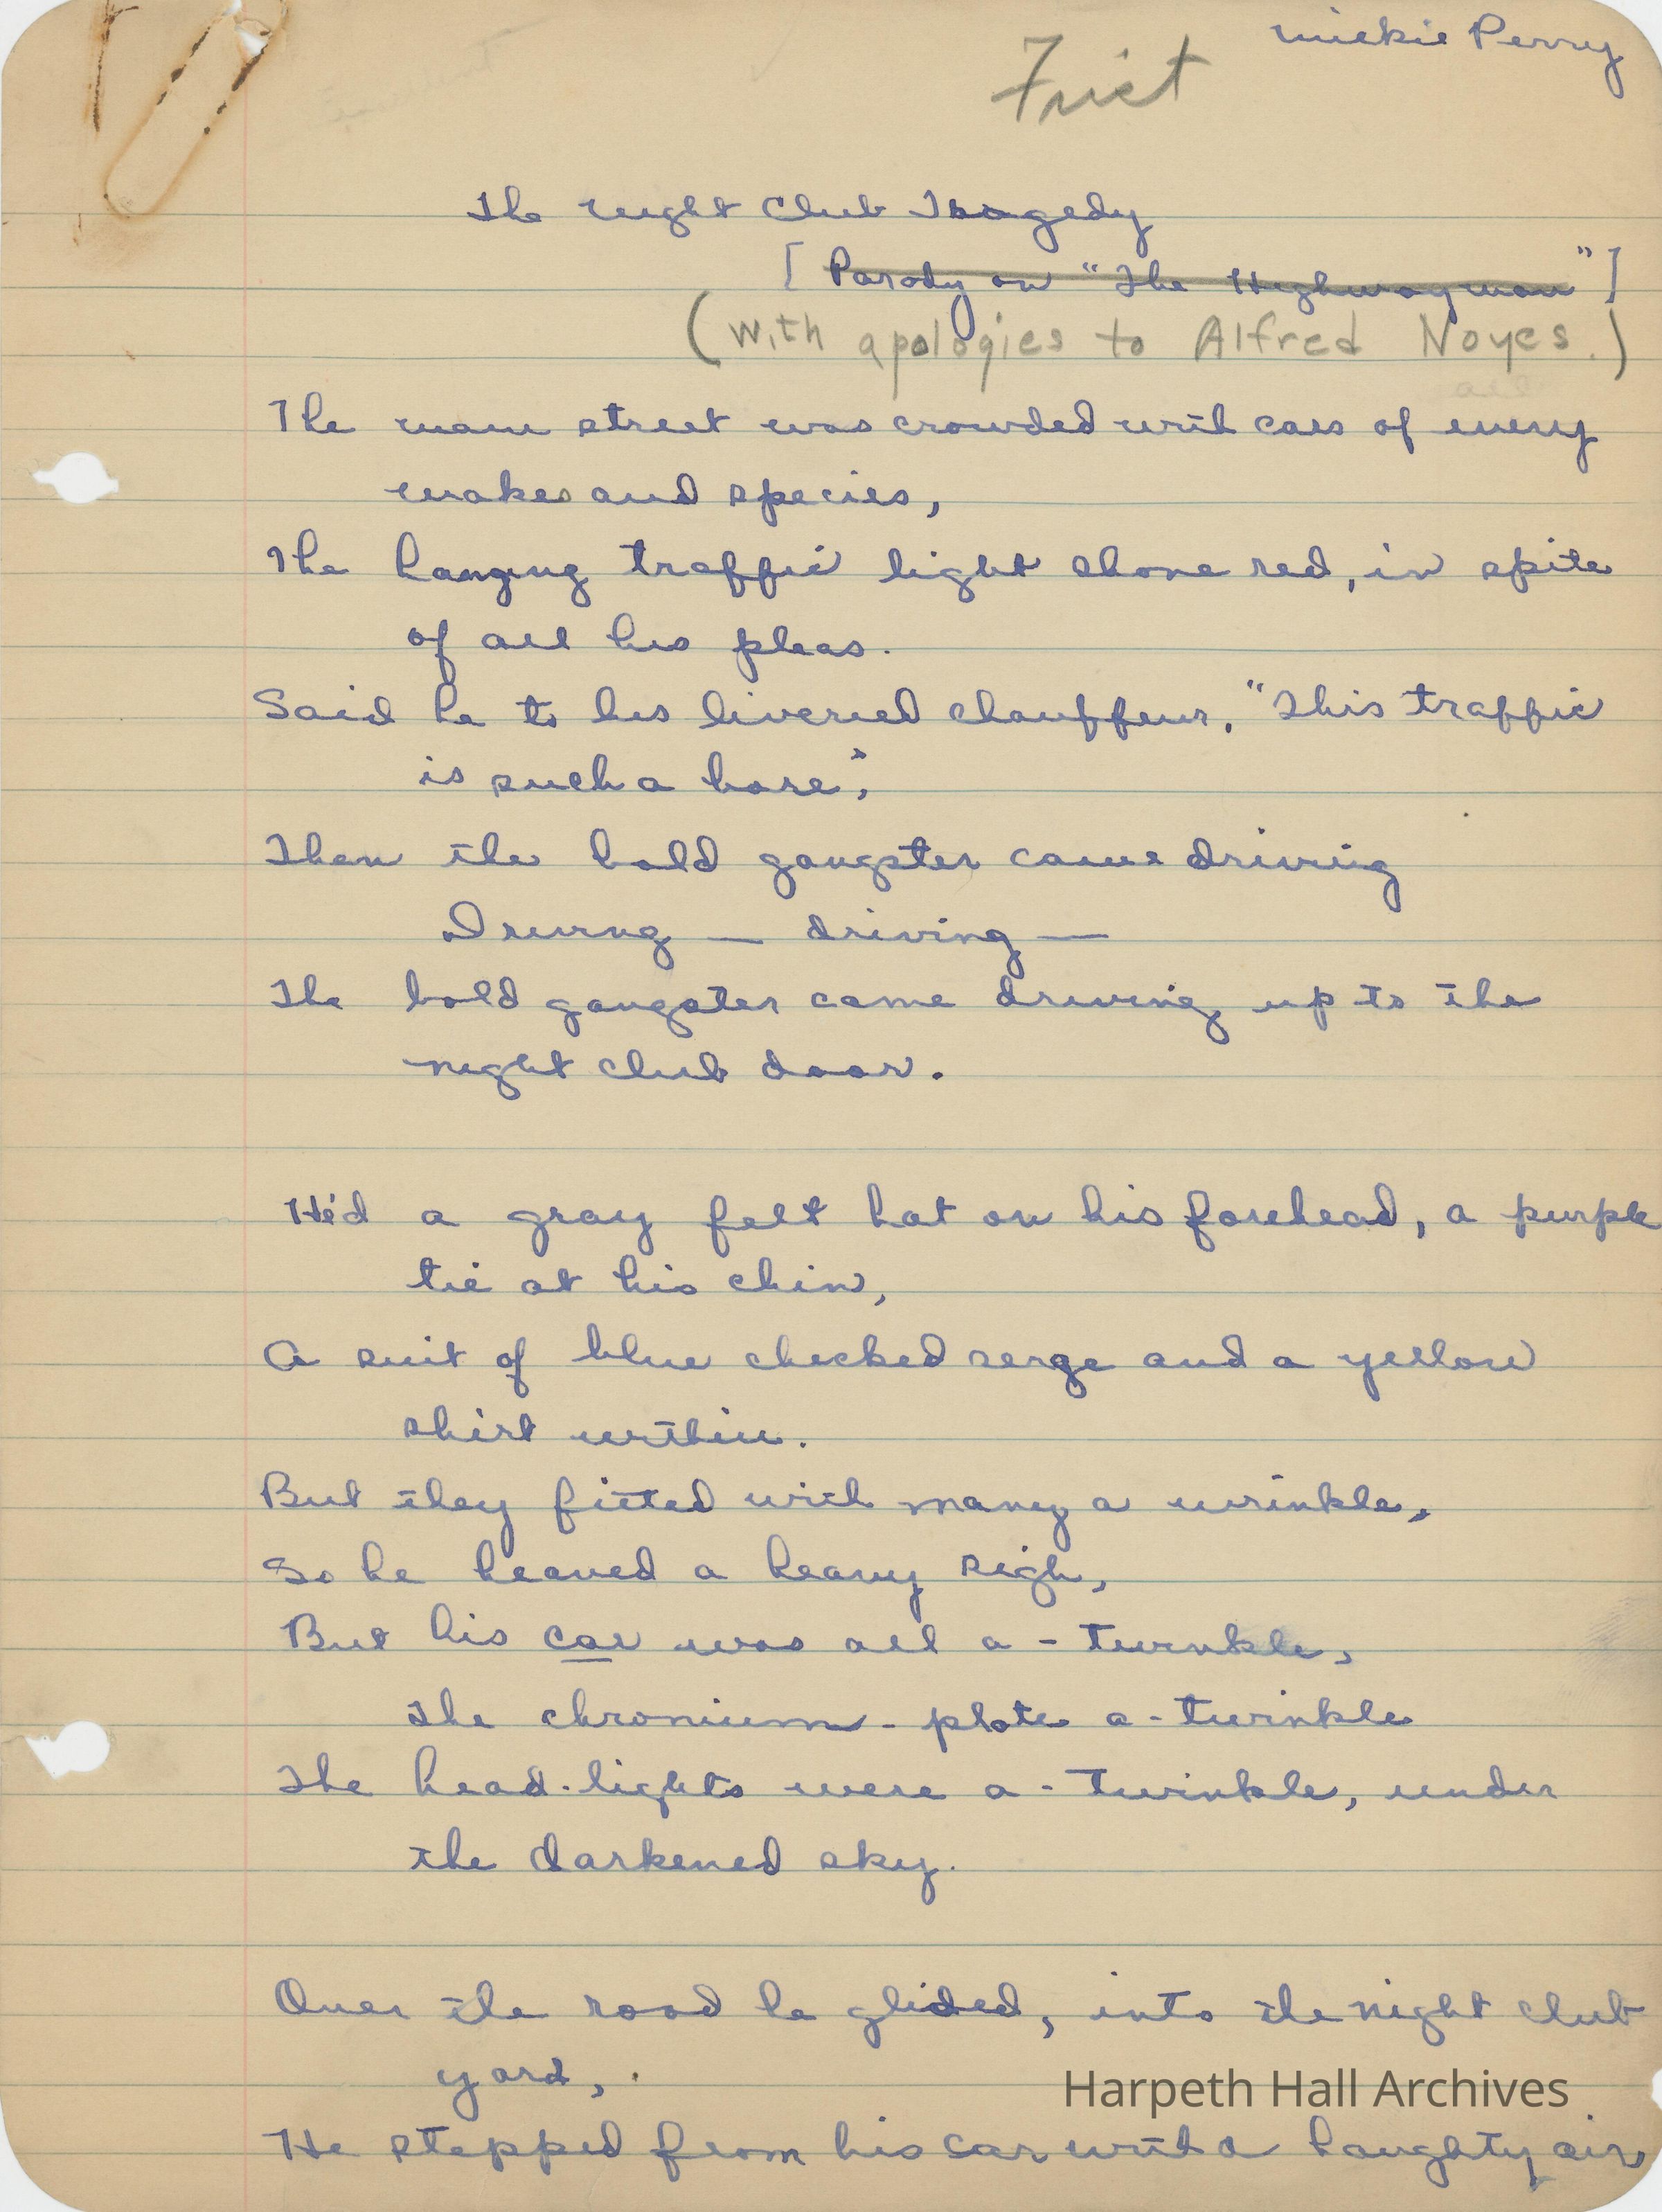 Mickie Perry
Frist
The Night Club Tragedy
[ Parody on "The Highwayman" ]
(With apologies to Alfred Noyes.)
all
The main street was crowded with cars of every
makes and species,
The hanging traffic light shone red, in spite
of all his pleas.
Said he to his liveried chauffeur, "This traffic
is such a bore",
Then the bold gangster came driving
Driving — driving —
The bold gangster came driving up to the
night club door.
He'd a gray felt hat on his forehead, a purple
tie at his chin,
A suit of blue checked serge and a yellow
shirt within.
But they fitted with many a wrinkle,
So he heaved a heavy sigh,
But his car was all a-twinkle,
The chromium-plate a-twinkle
The head-lights were a-twinkle, under
the darkened sky.
Over the road he glided, into the night club
yard,
He stepped from his car with a haughty air
Harpeth Hall Archives